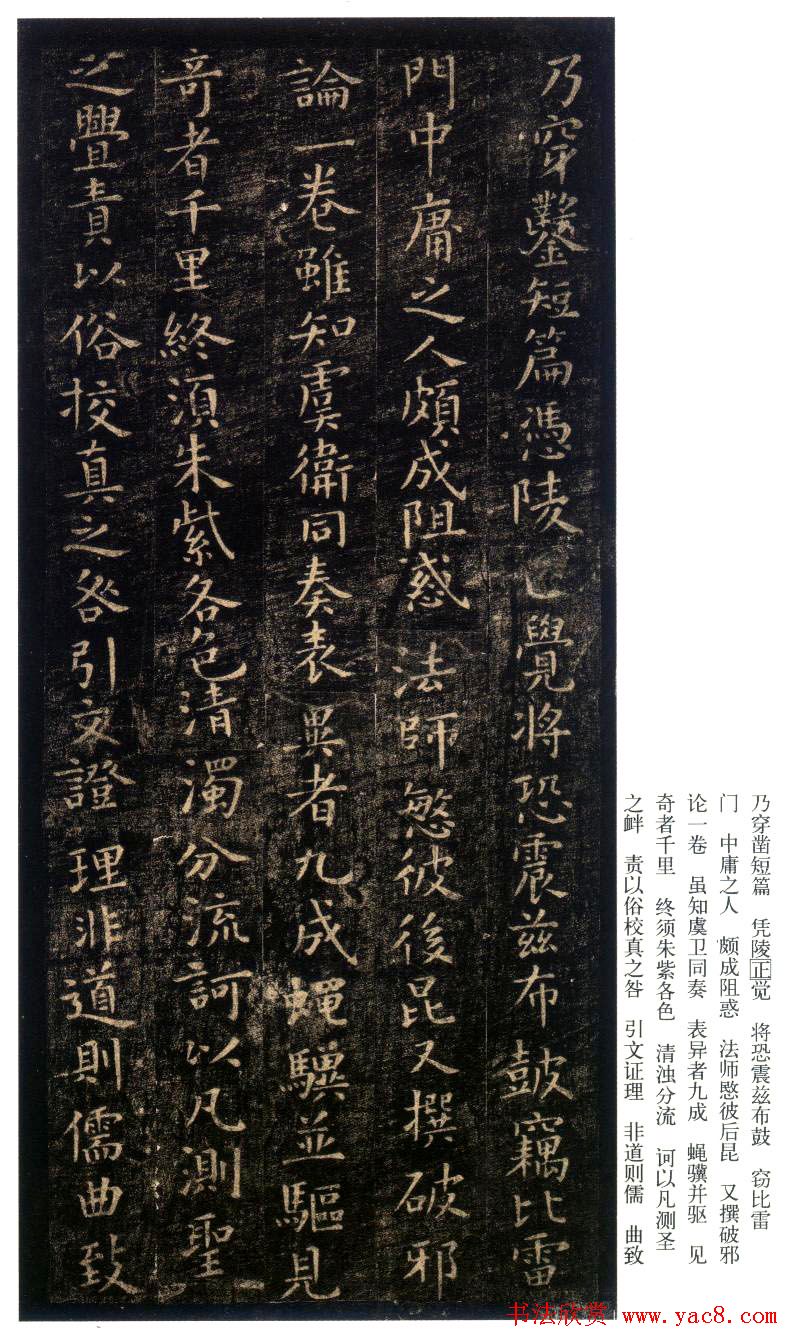 乃穿鑿短篇憑陵覺將恐震茲布鼓竊比雷
門中庸之人頗成阻惑法師愍彼後昆又撰破邪
論一卷雖知虞衛同奏表異者九成蠅驥並驅見
奇者千里終須朱紫各色清濁分流訶以凡測聖
之舋責以俗校真之咎引文證理非道則儒曲致
乃穿凿短篇　凭陵正觉　将恐震兹布鼓　窃比雷
门　中庸之人　颇成阻惑　法师愍彼后昆　又撰破邪
论一卷　虽知虞卫同奏　表异者九成　蝇骥并驱　见
奇者千里　终须朱紫各色　清浊分流　诃以凡测圣
之衅　责以俗校真之咎　引文证理　非道则儒　曲致
书法欣赏 www.yac8.com